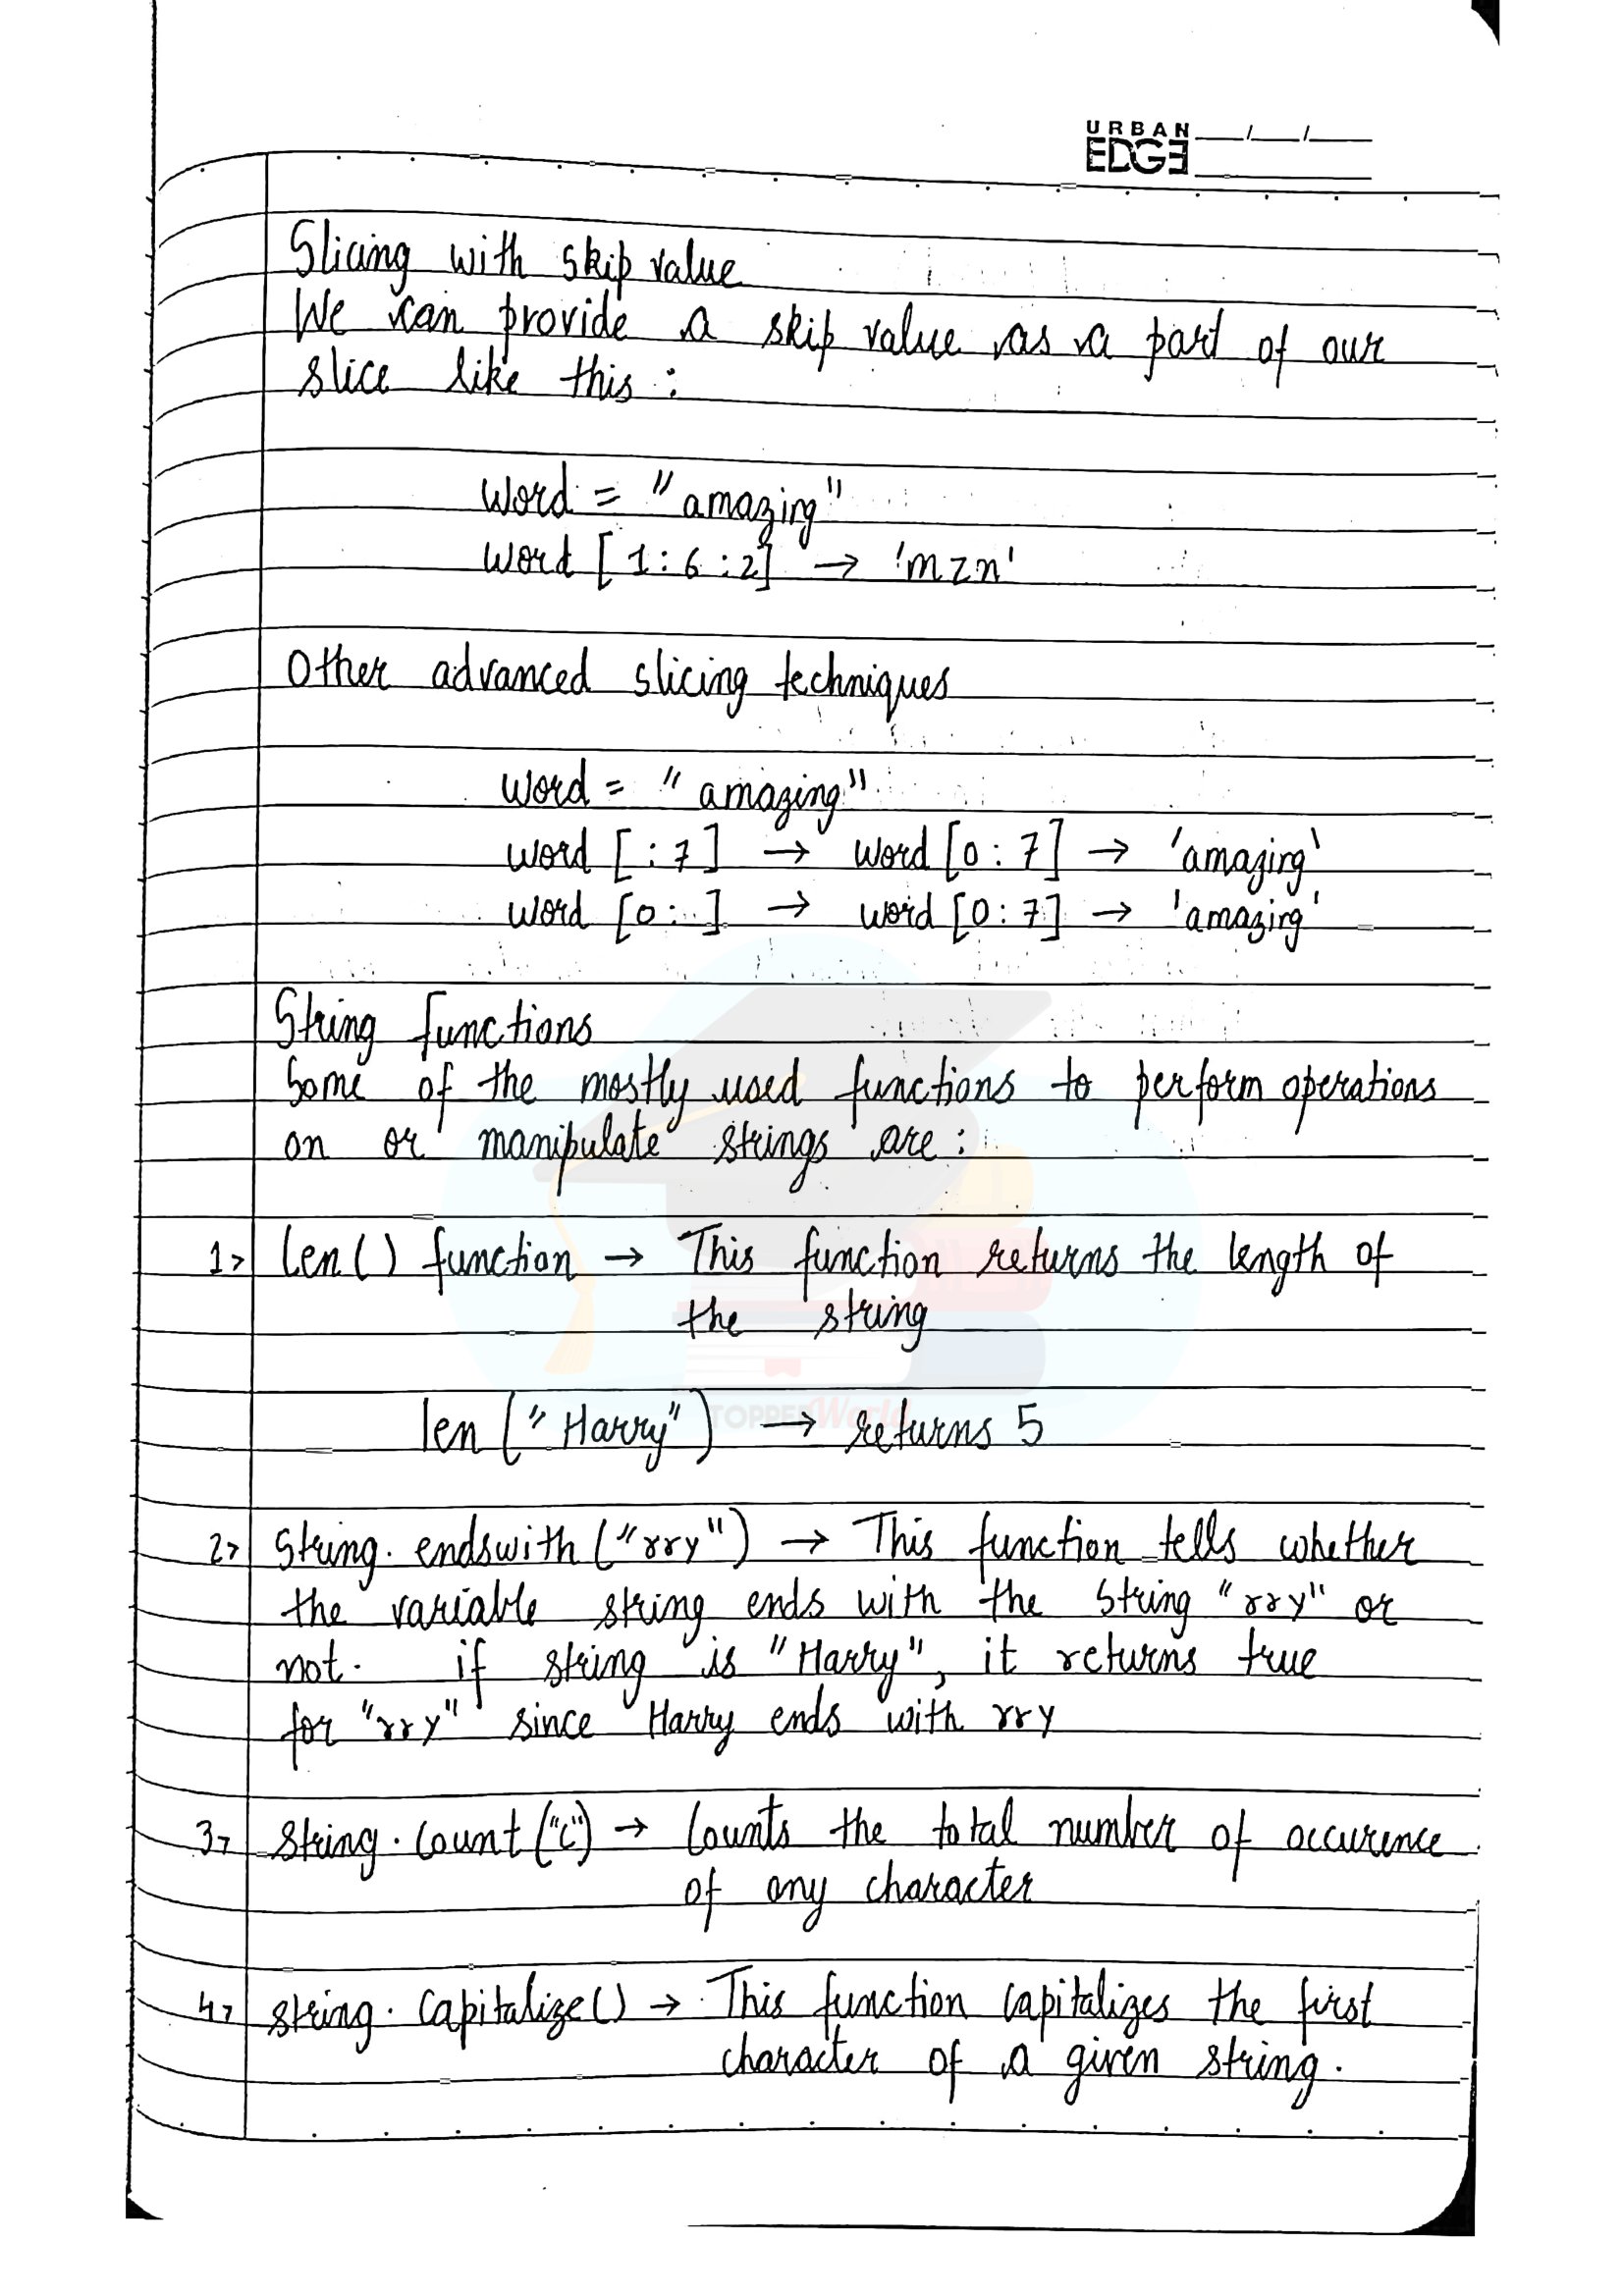 URBAN
EDGE
Slicing with skip value
We can provide a skip value as a part of our
slice like this :
word = "amazing"
word [ 1 : 6 : 2] → 'mzn'
Other advanced slicing techniques
word = "amazing"
word [ : 7 ] → word [0 : 7] → 'amazing'
word [0 : ] → word [0 : 7] → 'amazing'
String functions
Some of the mostly used functions to perform operations
on or manipulate strings are :
1> len() function → This function returns the length of
the string
len ("Harry") → returns 5
TOPPERWorld
2> String. endswith ("rry") → This function tells whether
the variable string ends with the string "rry" or
not. if string is "Harry", it returns true
for "rry" since Harry ends with rry
3> string. count ("c") → Counts the total number of occurence
of any character
4> string. capitalize() → This function capitalizes the first
character of a given string.